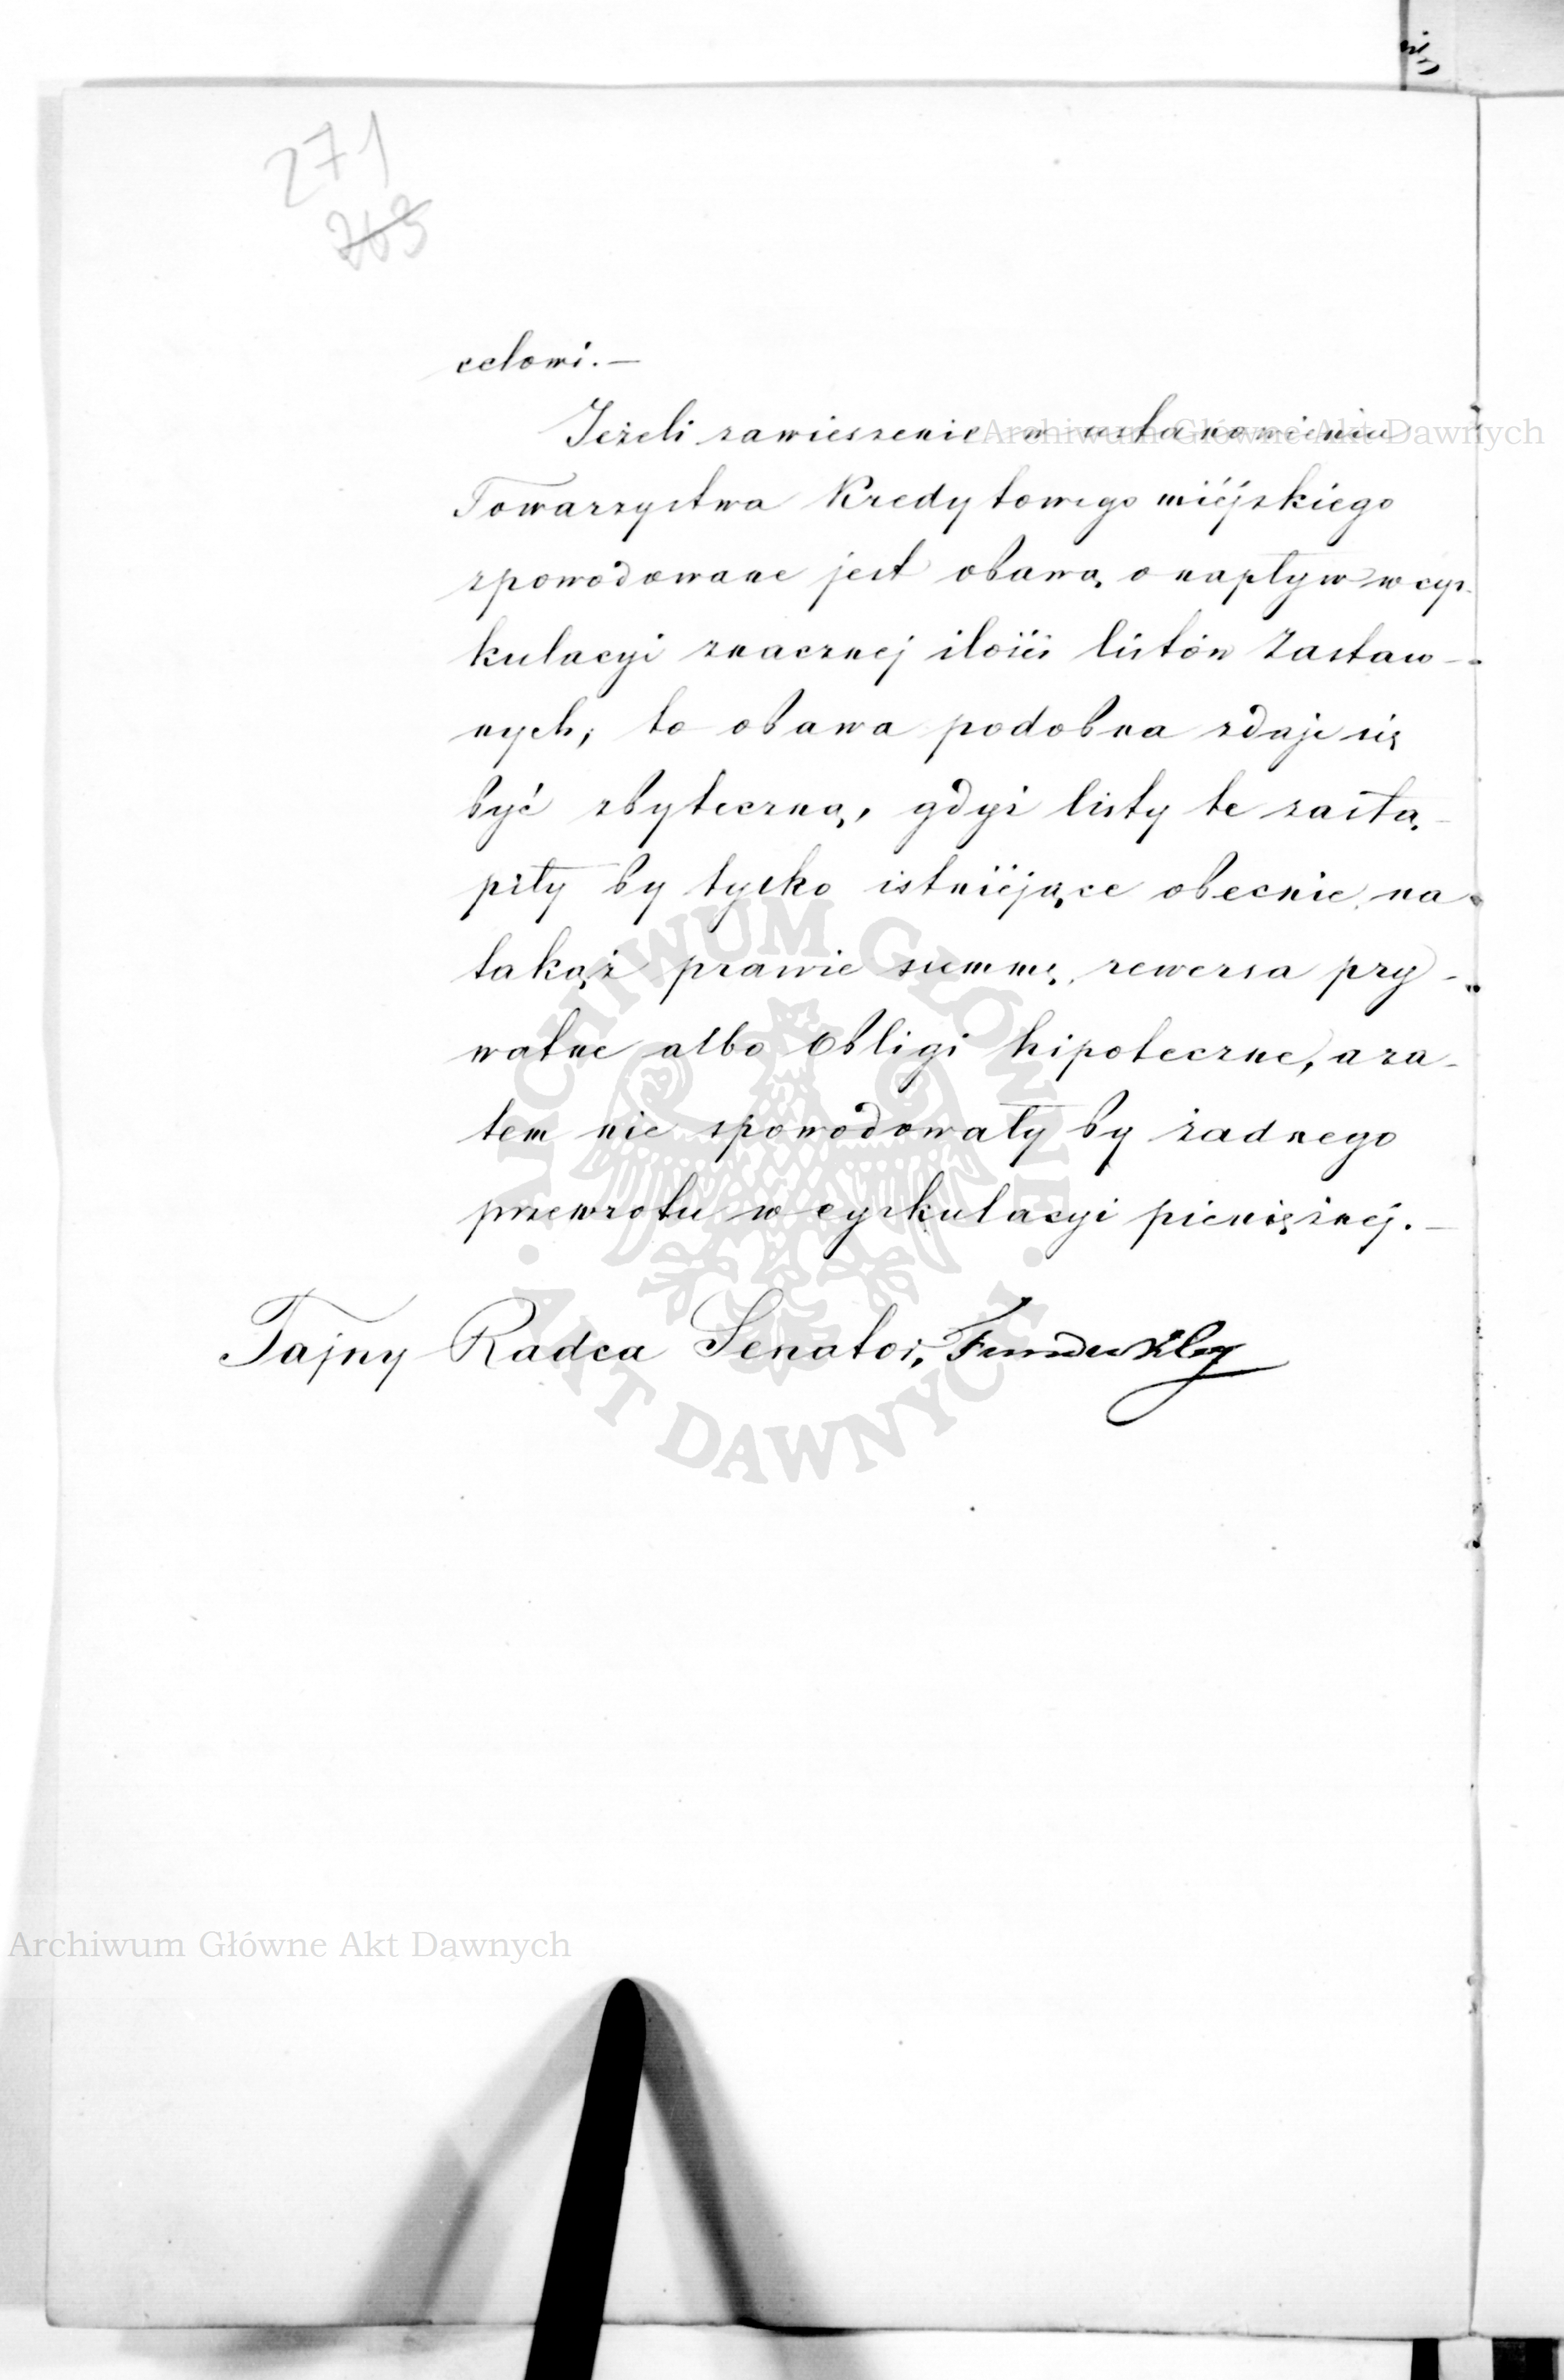 271
263
celowi. —
Jeżeli zawieszenie w ustanowieniu
Towarzystwa Kredytowego miejskiego
spowodowane jest obawą o napływ w cyr-
kulacyi znacznej ilości listów Zastaw-
nych; to obawa podobna zdaje się
być zbyteczną, gdyż listy te zastą-
piły by tylko istniejące obecnie na
takąż prawie summę, rewersa pry-
watne albo Obligi hipoteczne, a za-
tem nie spowodowały by żadnego
przewrotu w cyrkulacyi pieniężnej. —
Tajny Radca Senator, Funduklej
Archiwum Główne Akt Dawnych
ARCHIWUM GŁÓWNE
AKT DAWNYCH
Archiwum Główne Akt Dawnych